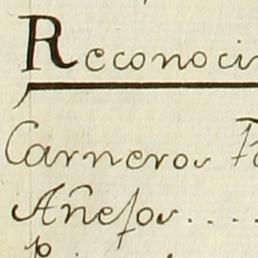 Reconoci
Carneros Pa
Añejos....